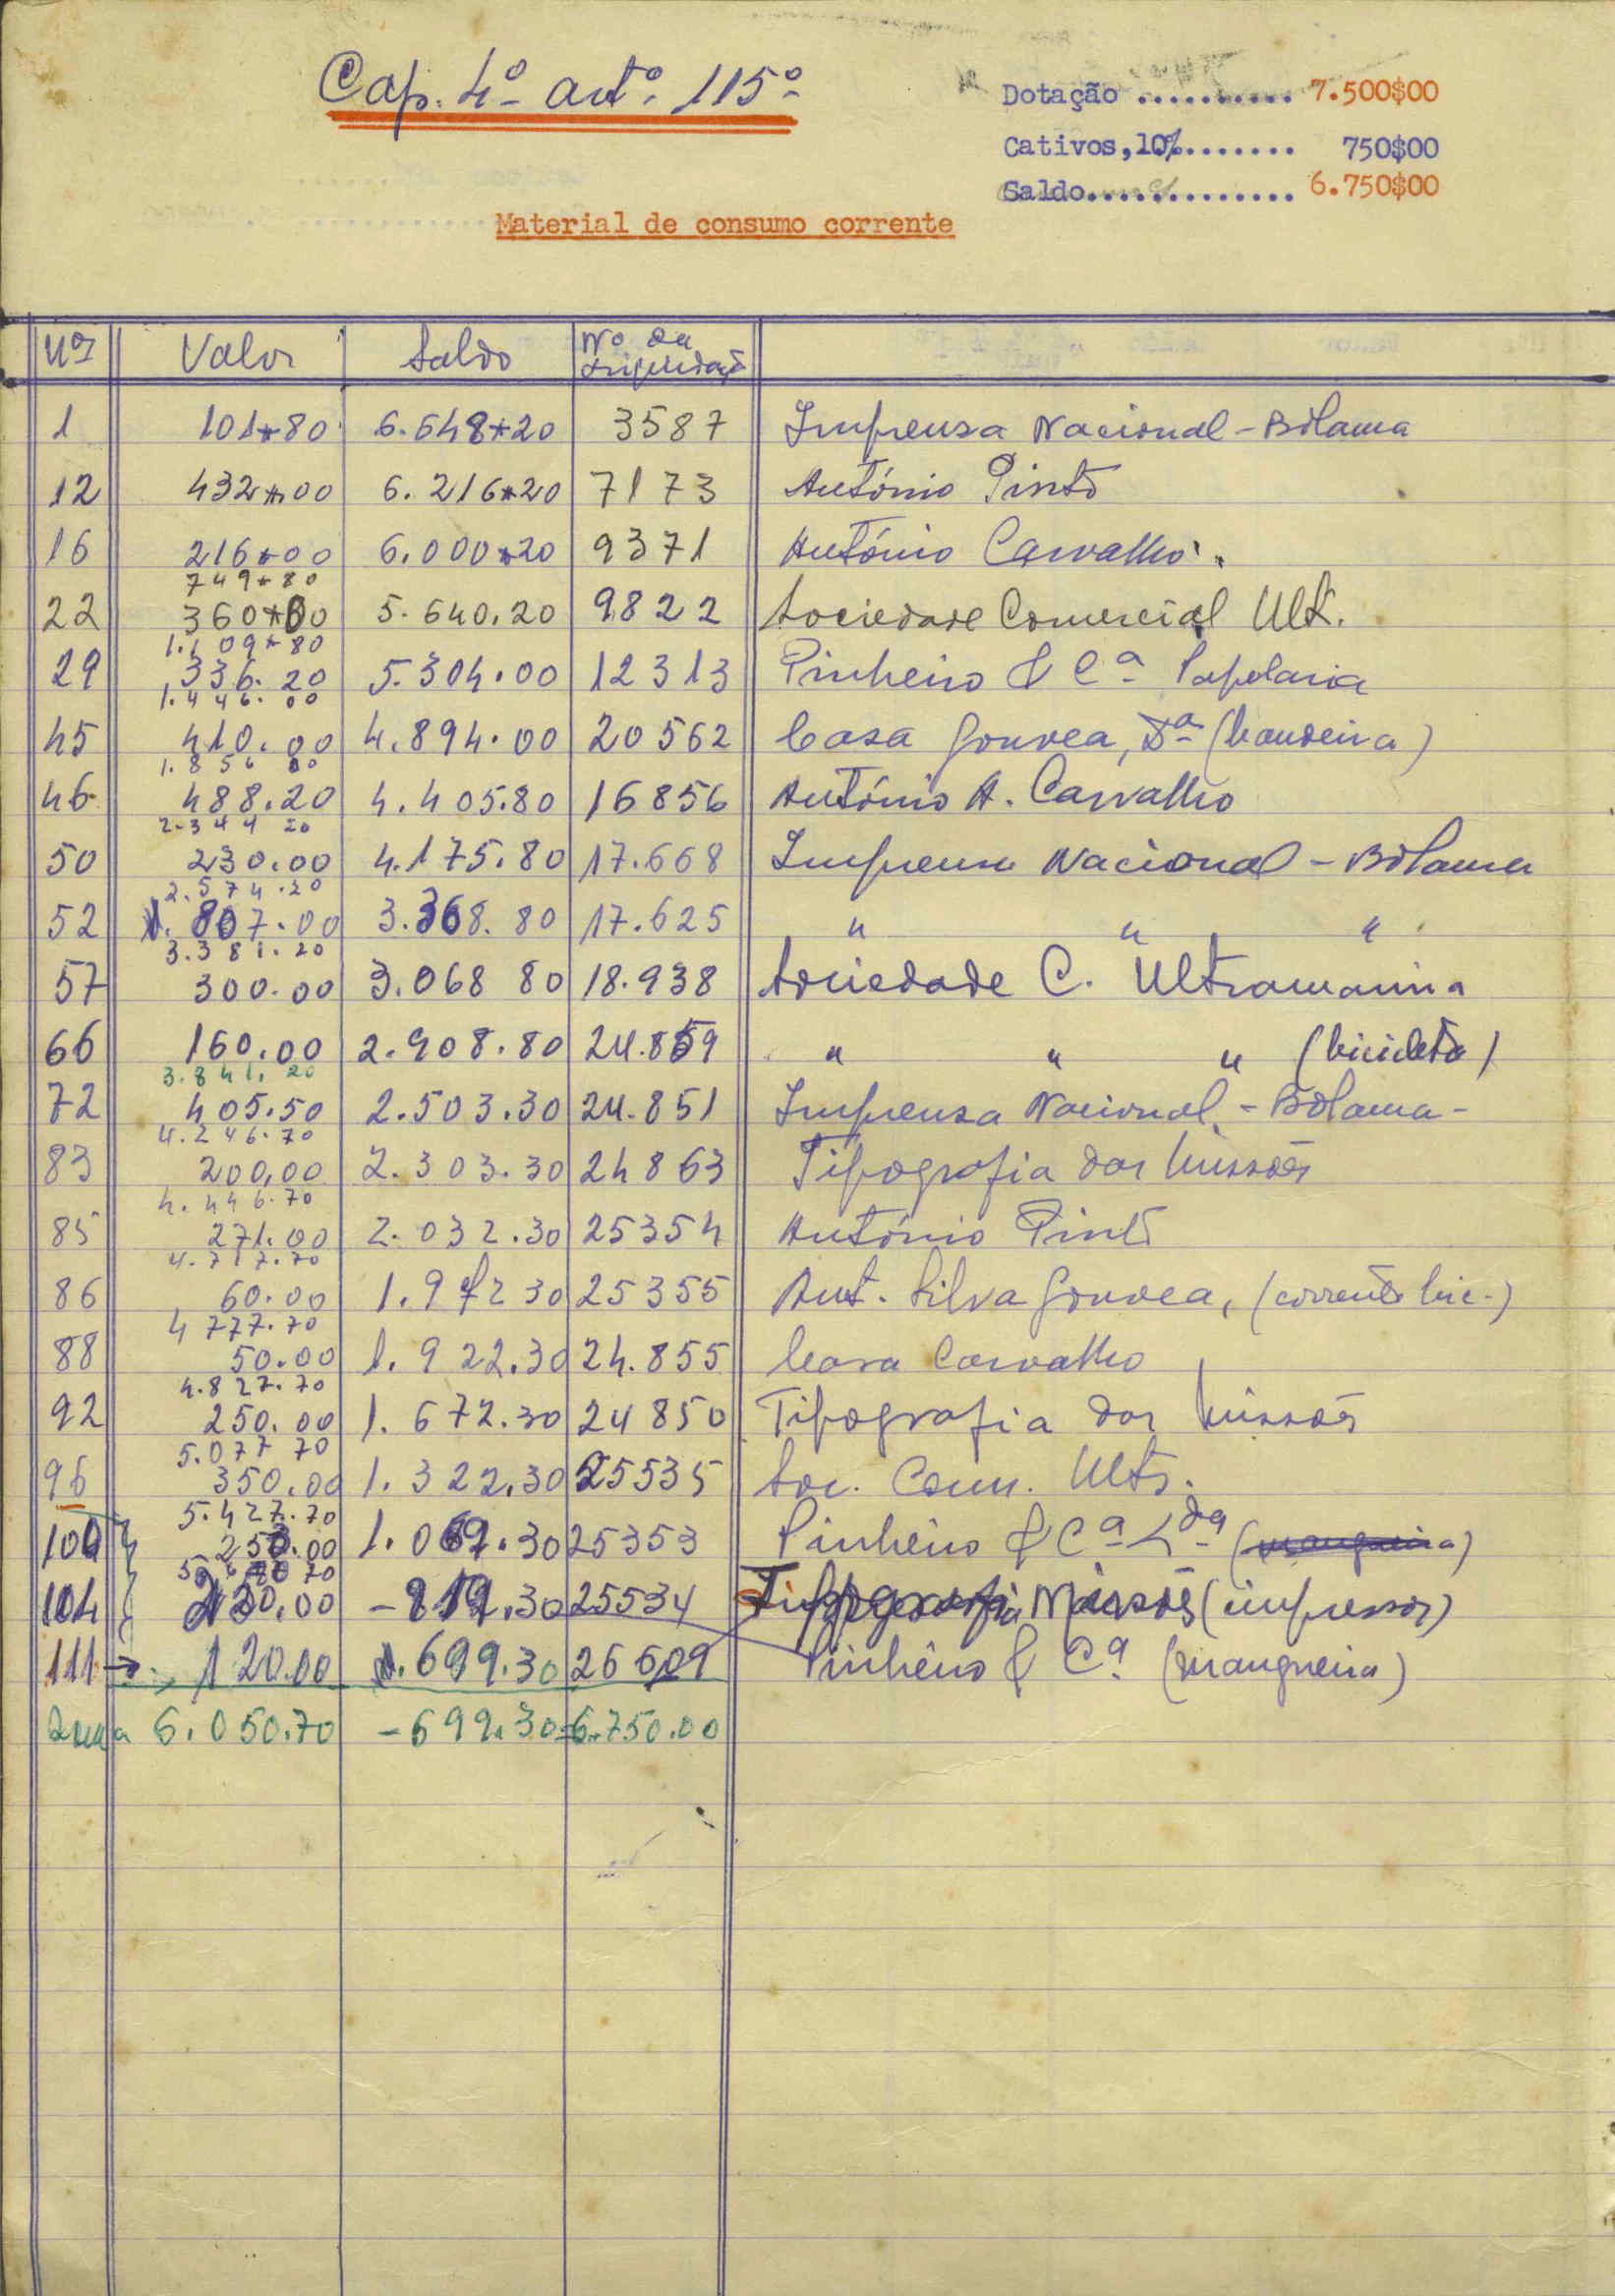 Cap. 4º artº. 115º
Dotação .......... 7.500$00
Cativos,10%....... 750$00
Saldo............. 6.750$00
Material de consumo corrente
Nºs Valor Saldo Nº da Liquidação
1 101$80 6.648$20 3587 Imprensa Nacional - Bolama
12 432$00 6.216$20 7173 António Pinto
16 216$00 6.000$20 9371 António Carvalho
749$80
22 360$00 5.640.20 9822 Sociedade Comercial Ult.
1.109$80
29 336.20 5.304.00 12313 Pinheiro & Cª Papelaria
1.446.00
45 410.00 4.894.00 20562 Casa Gouvea, (bandeira)
1.856 00
46 488.20 4.405.80 16856 António A. Carvalho
2.344 20
50 230.00 4.175.80 17.668 Imprensa Nacional - Bolama
2.574.20
52 807.00 3.368.80 17.625 " " "
3.381.20
57 300.00 3.068 80 18.938 Sociedade C. Ultramarina
66 160.00 2.908.80 24.859 " " " (bicicleta)
3.841.20
72 405.50 2.503.30 24.851 Imprensa Nacional - Bolama -
4.246.70
83 200,00 2.303.30 24863 Tipografia das Missões
4.446.70
85 271.00 2.032.30 25354 António Pinto
4.717.70
86 60.00 1.972 30 25355 Ant. Silva Gouvea, (corrente bic.)
4 777.70
88 50.00 1.922.30 24.855 Casa Carvalho
4.827.70
92 250.00 1.672.30 24850 Tipografia das Missões
5.077 70
96 350.00 1.322.30 25535 Soc. Com. Ultr.
5.427.70
100 .00 1.069.30 25353 Pinheiro & Cª Ldª (mangueira)
104 .00 - 819.30 25534 Tipografia Missões (impressos)
111 → 120.00 699.30 26609 Pinheiro & Cª (mangueira)
Soma 6.050.70 - 699.30 = 6.750.00